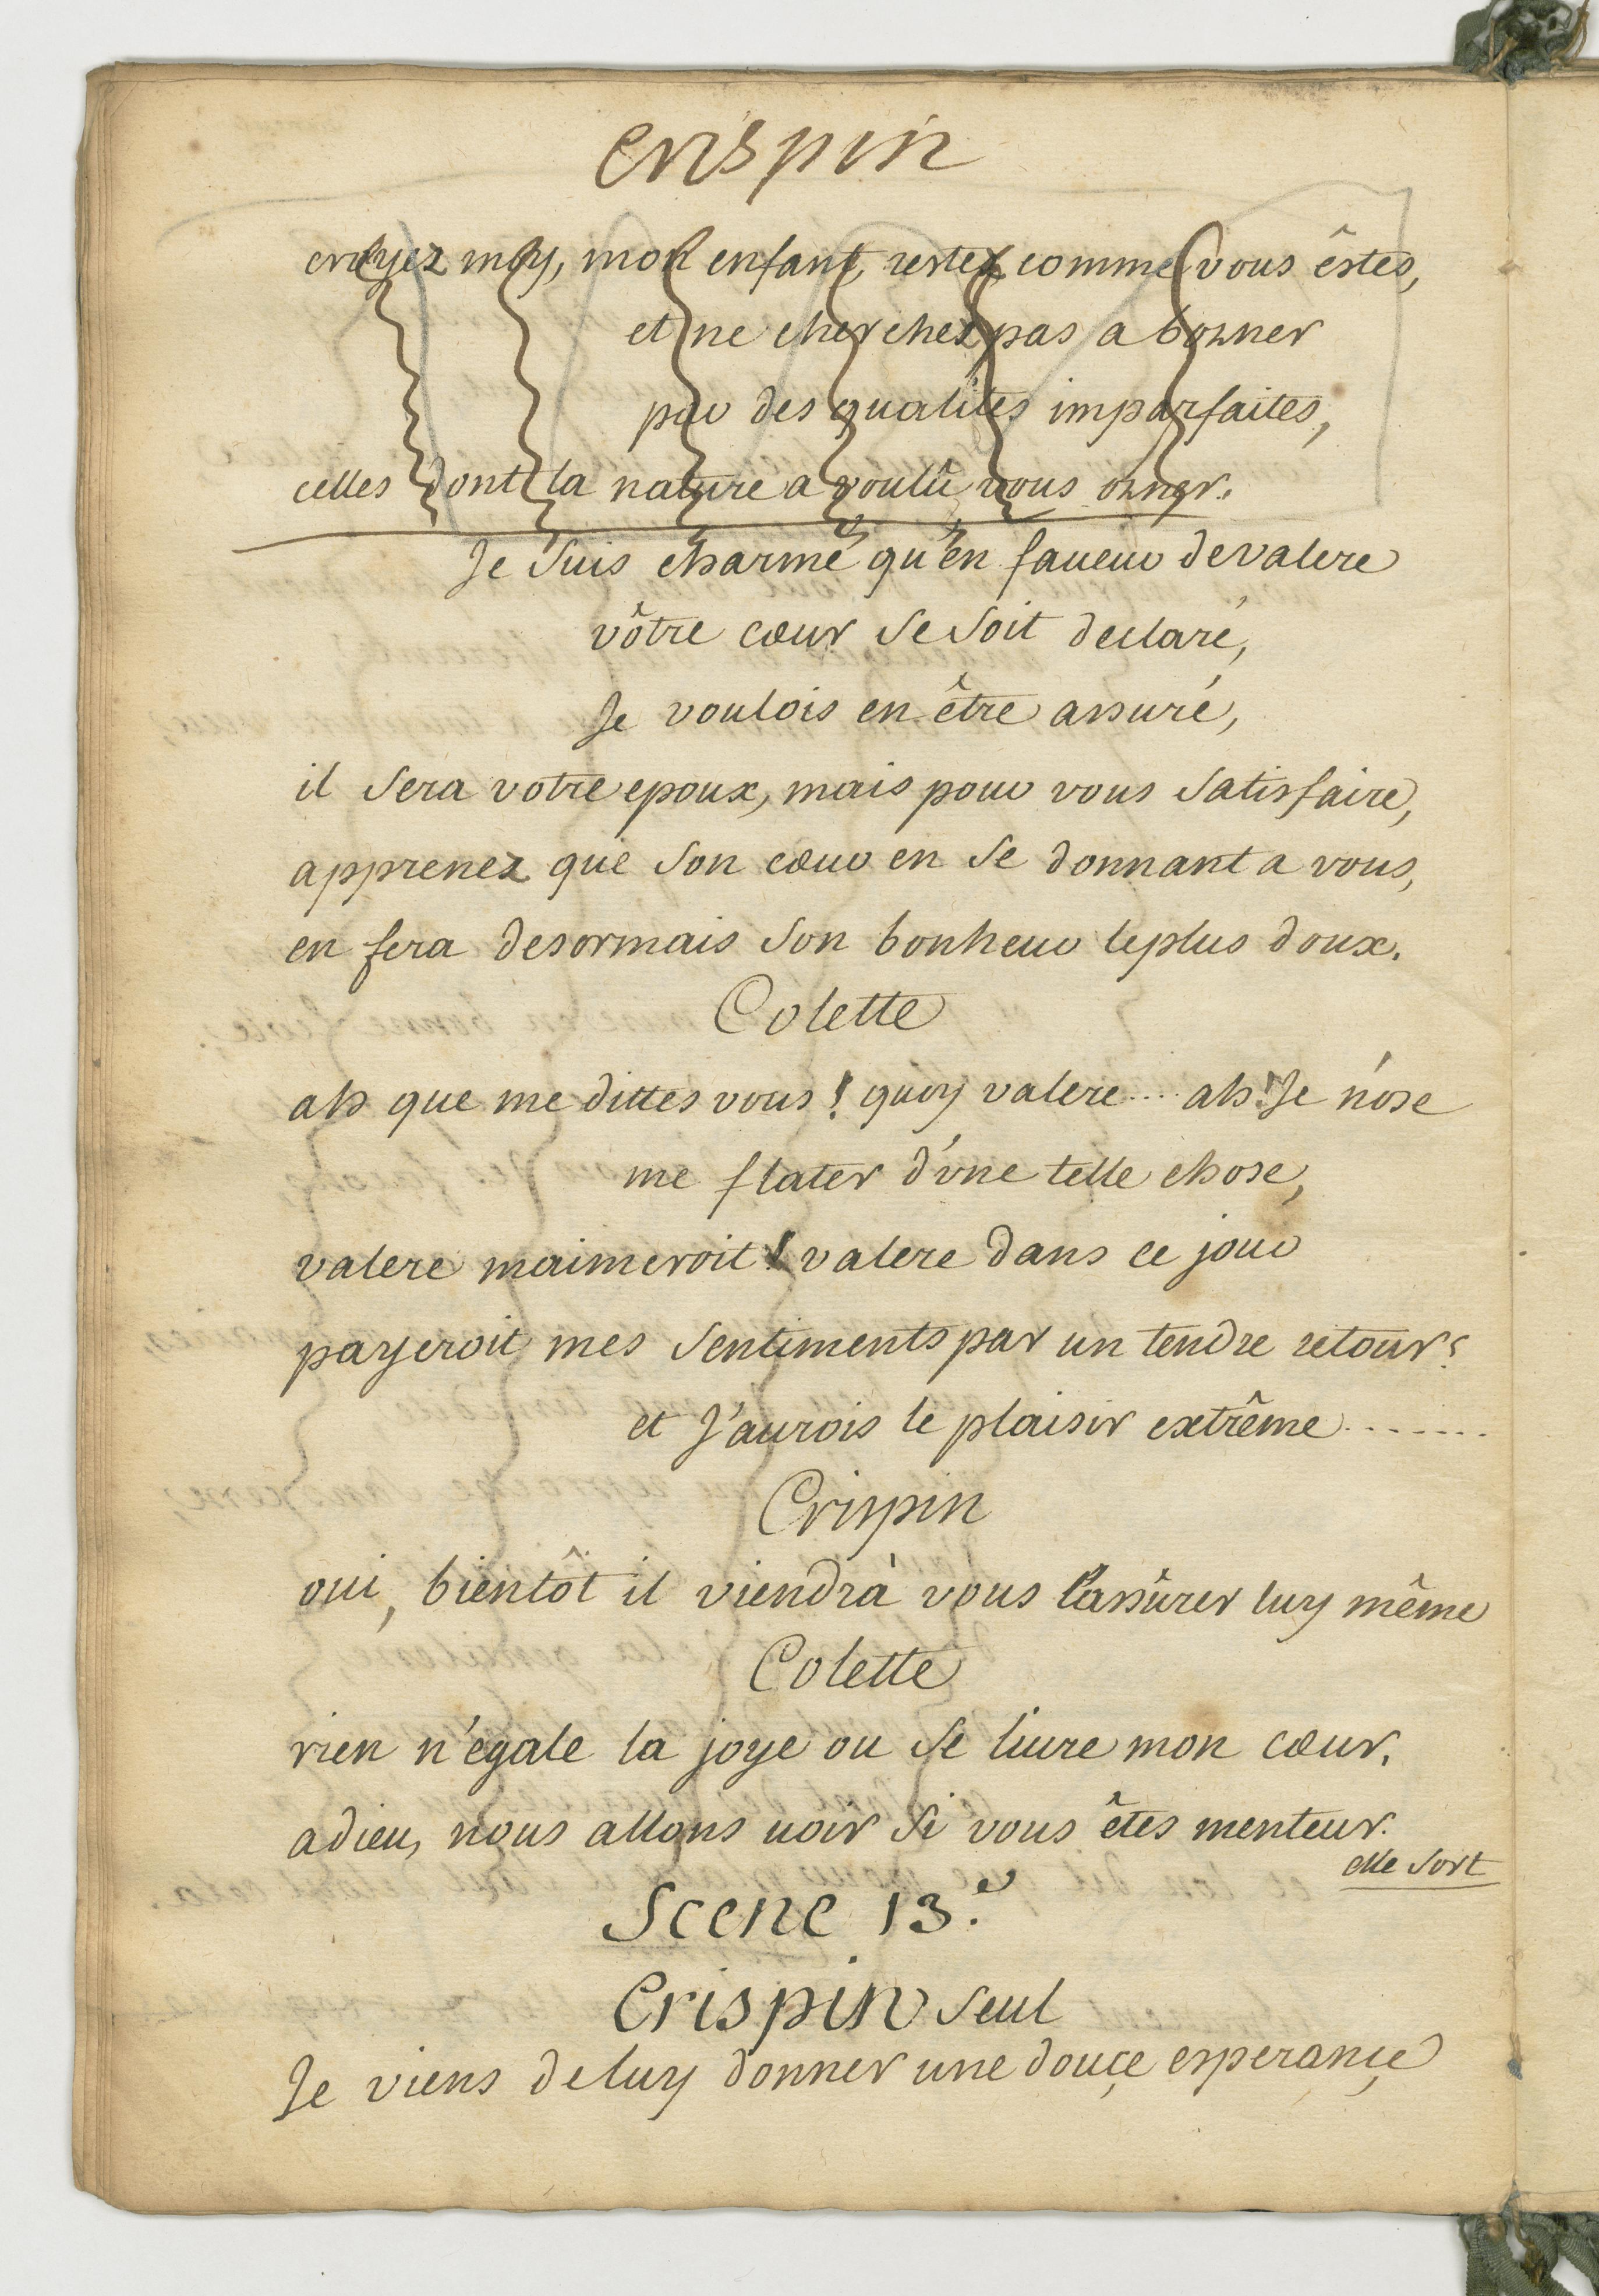 crispin
croyez moy, mon enfant, restez comme vous êstes,
et ne cherchez pas a borner
par des qualités imparfaites,
celles dont la nature a voulû vous orner.
Je suis charmé qu'en faueur de valere
vôtre cœur se soit declaré,
Je voulois en être assuré,
il sera votre epoux, mais pour vous satisfaire,
apprenez que son cœur en se donnant a vous,
en fera desormais son bonheur le plus doux.
Colette
ah que me dittes vous! quoy valere.... ah! Je n'ose
me flater d'vne telle chose,
valere maimeroit! valere dans ce jour
payeroit mes sentiments par un tendre retour?
et J'aurois le plaisir extrême.......
Crispin
oui, bientôt il viendrà vous l'assûrer luy même
Colette
rien n'égale la joye ou se liure mon cœur.
adieu, nous allons uoir si vous êtes menteur.
elle sort
Scene 13.e
Crispin seul
Je viens de luy donner une douçe esperançe